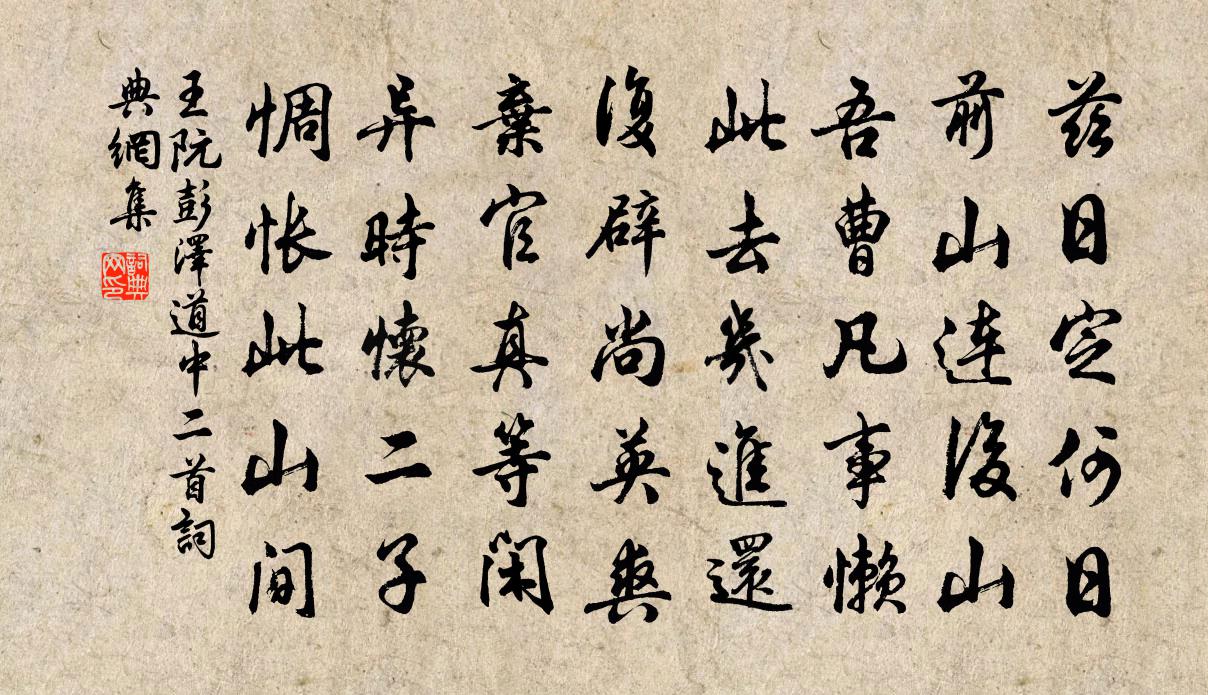 茲日定何日
前山連後山
吾曹凡事懶
此去幾進還
復辟尚英爽
棄官真等閑
异時懷二子
惆悵此山間
王阮彭澤道中二首詞
典網集
詞典
网印